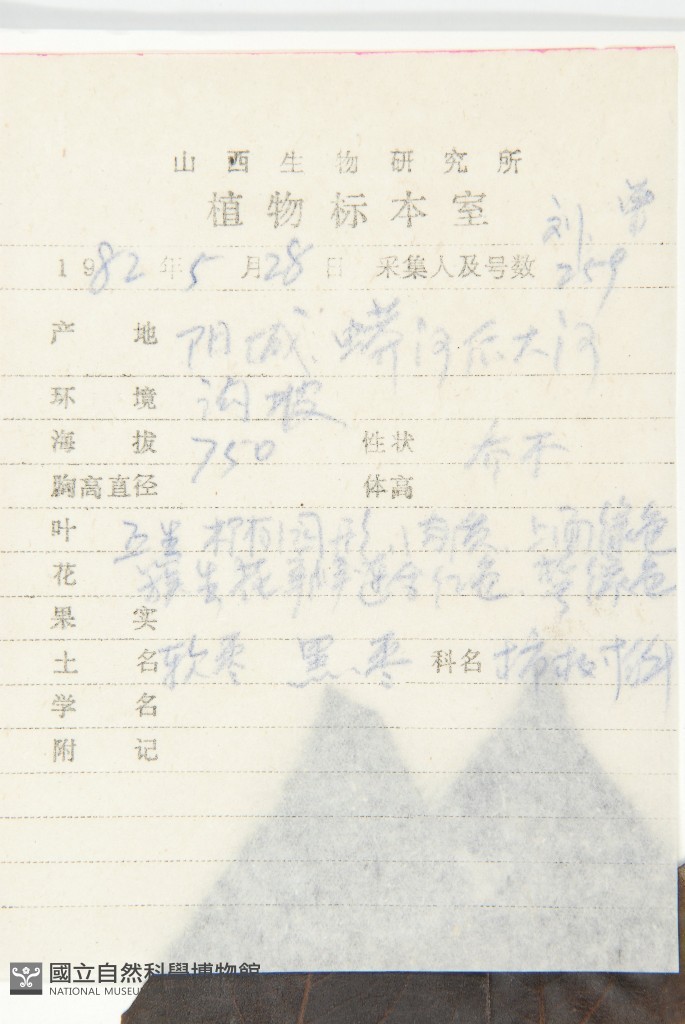 山西生物研究所
植物标本室
刘、曾
1982年5月28日 采集人及号数 259
产地 阳城、蟒河后大河
环境 沟坡
海拔 750 性状 乔木
胸高直径 体高
叶 互生 椭圆形、肉质、上面绿色
花 簇生花 连合红色、萼绿色
果实
土名 软枣 黑枣 科名 柿树科
学名
附记
國立自然科學博物館
NATIONAL MUSEU